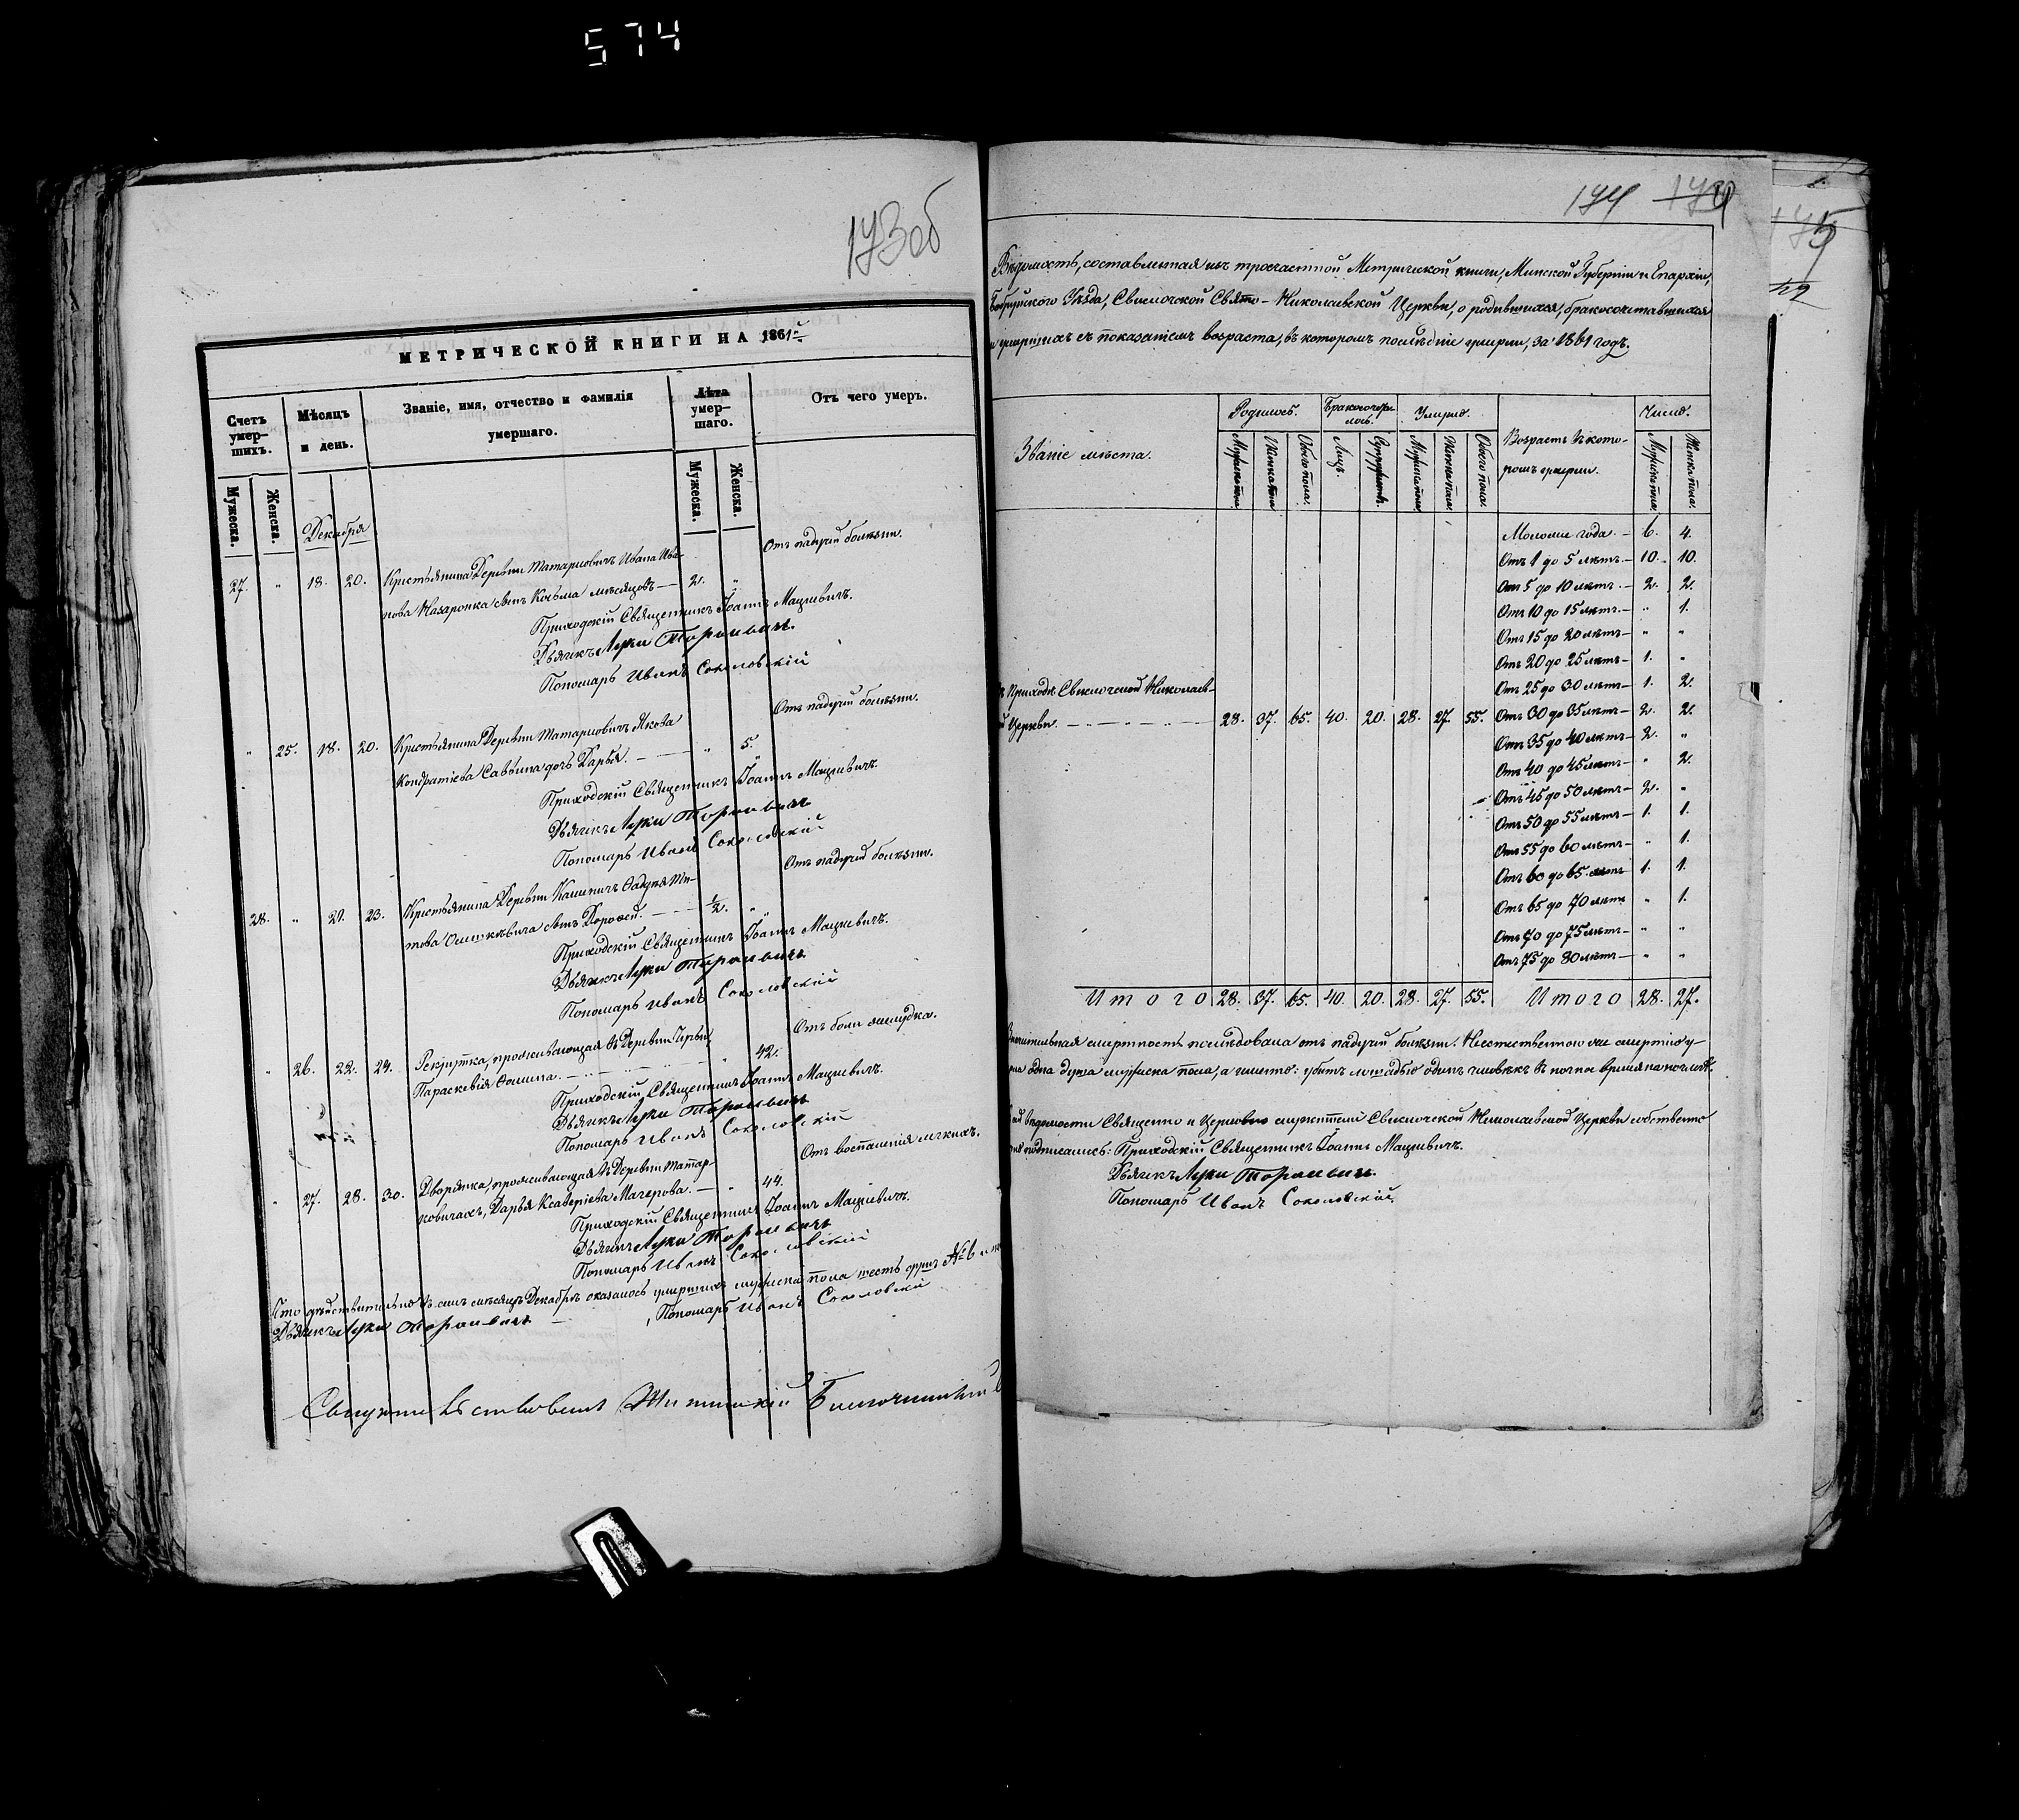 574
173об
МЕТРИЧЕСКОЙ КНИГИ НА 1861й
Счетъ умершихъ.
Мѣсяцъ и день.
Званіе, имя, отчество и фамилія умершаго.
Лѣта умершаго.
Отъ чего умеръ.
Мужеска.
Женска.
Мужеска.
Женска.
Декабря
27. " 18. 20. Крестьянина Деревни Татарковичъ Ивана Ива- Отъ падучей болѣзни.
нова Назаронка сынъ Косьма мѣсяцовъ — 2. "
Приходскій Священникъ Іоаннъ Мацкевичъ.
Дьячекъ Лука Тараневич
Пономарь Иванъ Соколовскій
" 25. 18. 20. Крестьянина Деревни Татарковичъ Якова Отъ падучей болѣзни.
Кондратіева Саввина дочь Дарья. — " 5.
Приходскій Священникъ Іоаннъ Мацкевичъ.
Дьячекъ Лука Тараневич
Пономарь Иванъ Соколовскій
28. " 21. 23. Крестьянина Деревни Ѳаддея Ти- Отъ падучей болѣзни.
това сынъ Дороѳей. — ½. "
Приходскій Священникъ Іоаннъ Мацкевичъ.
Дьячекъ Лука Тараневич
Пономарь Иванъ Соколовскій
" 26. 22. 24. Рекрутка, проживающая въ Деревни Отъ боли желудка.
Параскевія Ѳомина. — " 42.
Приходскій Священникъ Іоаннъ Мацкевичъ.
Дьячекъ Лука Тараневич
Пономарь Иванъ Соколовскій
" 27. 28. 30. Дворянка, проживающая въ Деревни Татар- Отъ воспаленія легкихъ.
ковичахъ, Дарья Ксаверіева Мачерова. — " 44.
Приходскій Священникъ Іоаннъ Мацкевичъ.
Дьячекъ Лука Тараневич
Пономарь Иванъ Соколовскій
Что дѣйствительно въ семъ мѣсяцѣ Декабрѣ оказалось умершихъ мужеска пола шесть душъ № 6 и
Дьячекъ Лука Тараневич — , Пономарь Иванъ Соколовскій
174 173
Вѣдомость, составленная изъ троечастной Метрической книги, Минской Губерніи и Епархіи,
Бобруйского Уѣзда, Свислочской Свято-Николаевской Церкви, о родившихся, бракосочетавшихся
и умершихъ съ показаніемъ возраста, въ которомъ послѣдніе умерли, за 1861 годъ.
Званіе мѣста.
Родилось.
Бракосочеталось.
Умерло.
Возрастъ въ которомъ умерли.
Число.
Мужска пола.
Женска пола.
Обоего пола.
Лицъ.
Супружествъ.
Мужска пола.
Женска пола.
Обоего пола.
Мужска пола.
Женска пола.
Моложе года. — 6. 4.
Отъ 1 до 5 лѣтъ — 10. 10.
Отъ 5 до 10 лѣтъ — 2. 2.
Отъ 10 до 15 лѣтъ — " 1.
Отъ 15 до 20 лѣтъ — " "
Отъ 20 до 25 лѣтъ — 1. "
Отъ 25 до 30 лѣтъ — 1. 2.
Приходѣ Свислочской Николаев-
Церкви. — 28. 37. 65. 40. 20. 28. 27. 55. Отъ 30 до 35 лѣтъ — 2. 2.
Отъ 35 до 40 лѣтъ — 2. "
Отъ 40 до 45 лѣтъ — " 2.
Отъ 45 до 50 лѣтъ — 2. "
Отъ 50 до 55 лѣтъ — 1. 1.
Отъ 55 до 60 лѣтъ — " 1.
Отъ 60 до 65 лѣтъ 1. 1.
Отъ 65 до 70 лѣтъ " 1.
Отъ 70 до 75 лѣтъ — " "
Отъ 75 до 80 лѣтъ — " "
Итого 28. 37. 65. 40. 20. 28. 27. 55. Итого 28. 27.
смертность послѣдовала отъ падучей болѣзни. Неестественною же смертію у-
одна душа мужеска пола, а именно: убитъ лошадью одинъ человѣкъ въ ночное время на ночлегѣ.
вѣдомости Священно и Церковно служители Свислочской Николаевской Церкви собственно
подписались: Приходскій Священникъ Іоаннъ Мацкевичъ.
Дьячекъ Лука Тараневич
Пономарь Иванъ Соколовскій